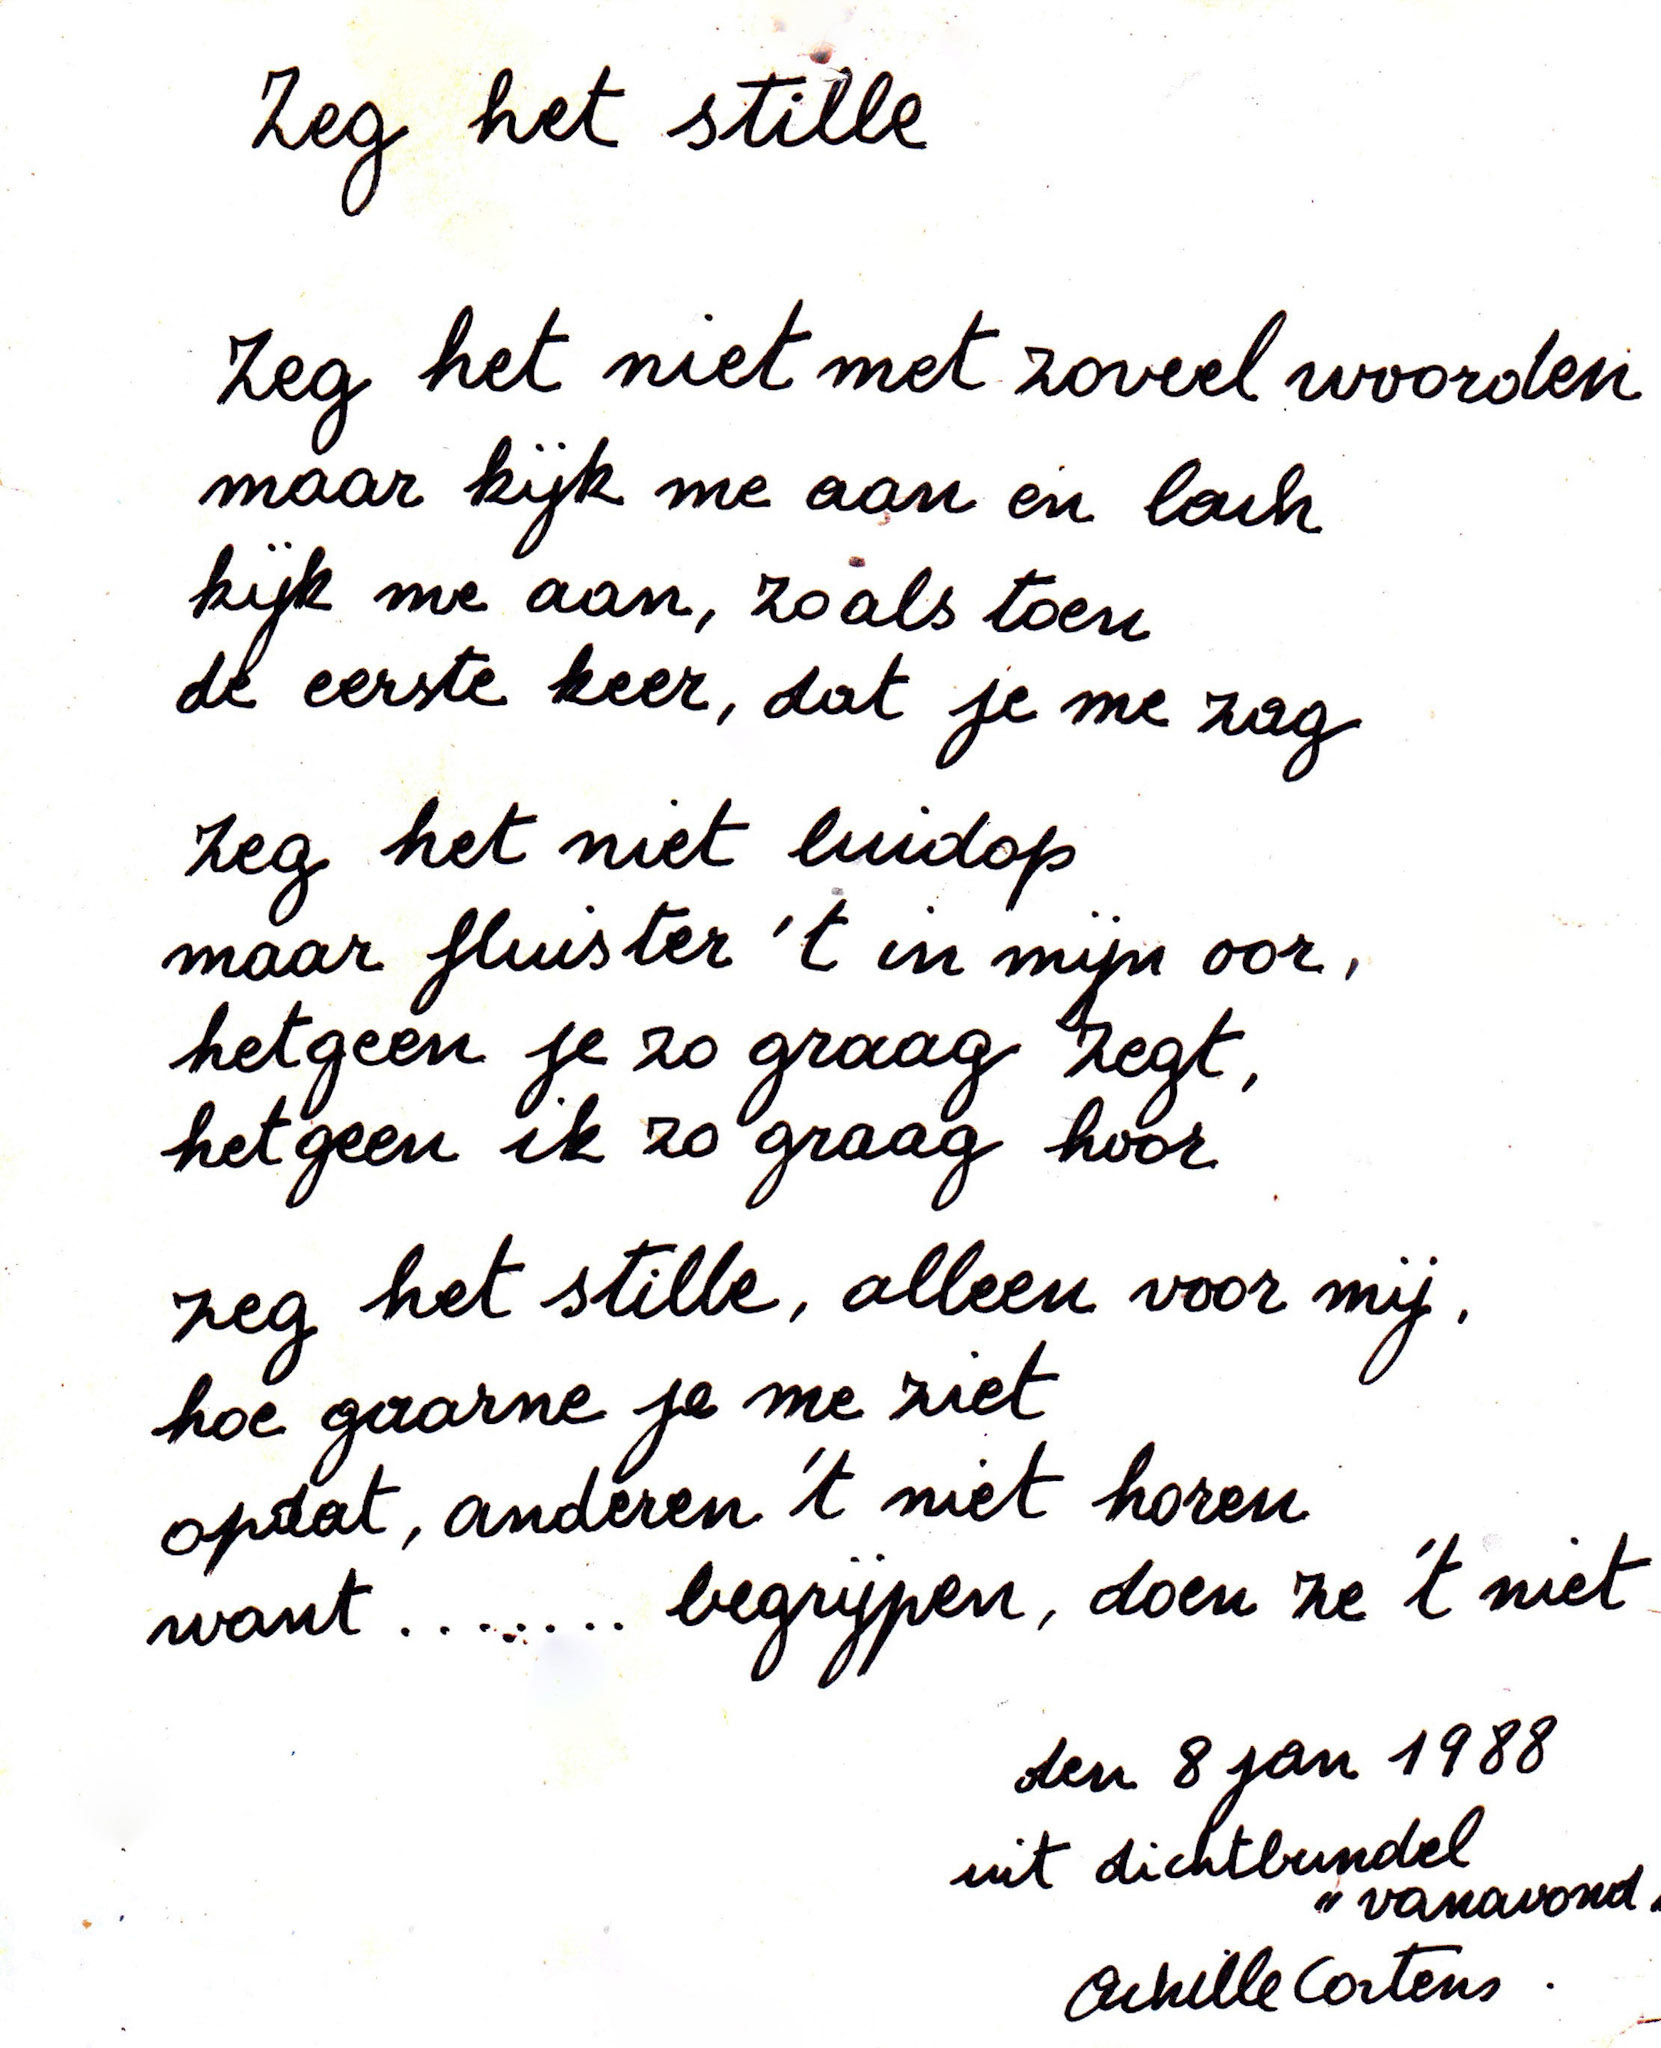 Zeg het stille
Zeg het niet met zoveel woorden
maar kijk me aan en lach
kijk me aan, zoals toen
de eerste keer, dat je me zag
Zeg het niet luidop
maar fluister 't in mijn oor,
hetgeen je zo graag zegt,
hetgeen ik zo graag hoor
zeg het stille, alleen voor mij,
hoe gaarne je me ziet
opdat, anderen 't niet horen
want ........ begrijpen, doen ze 't niet
den 8 jan 1988
uit dichtbundel
"vanavond"
Achille Cortens.